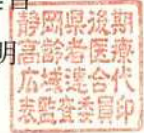 明
静岡県後期
高齢者医療
広域連合代
表監査委員印